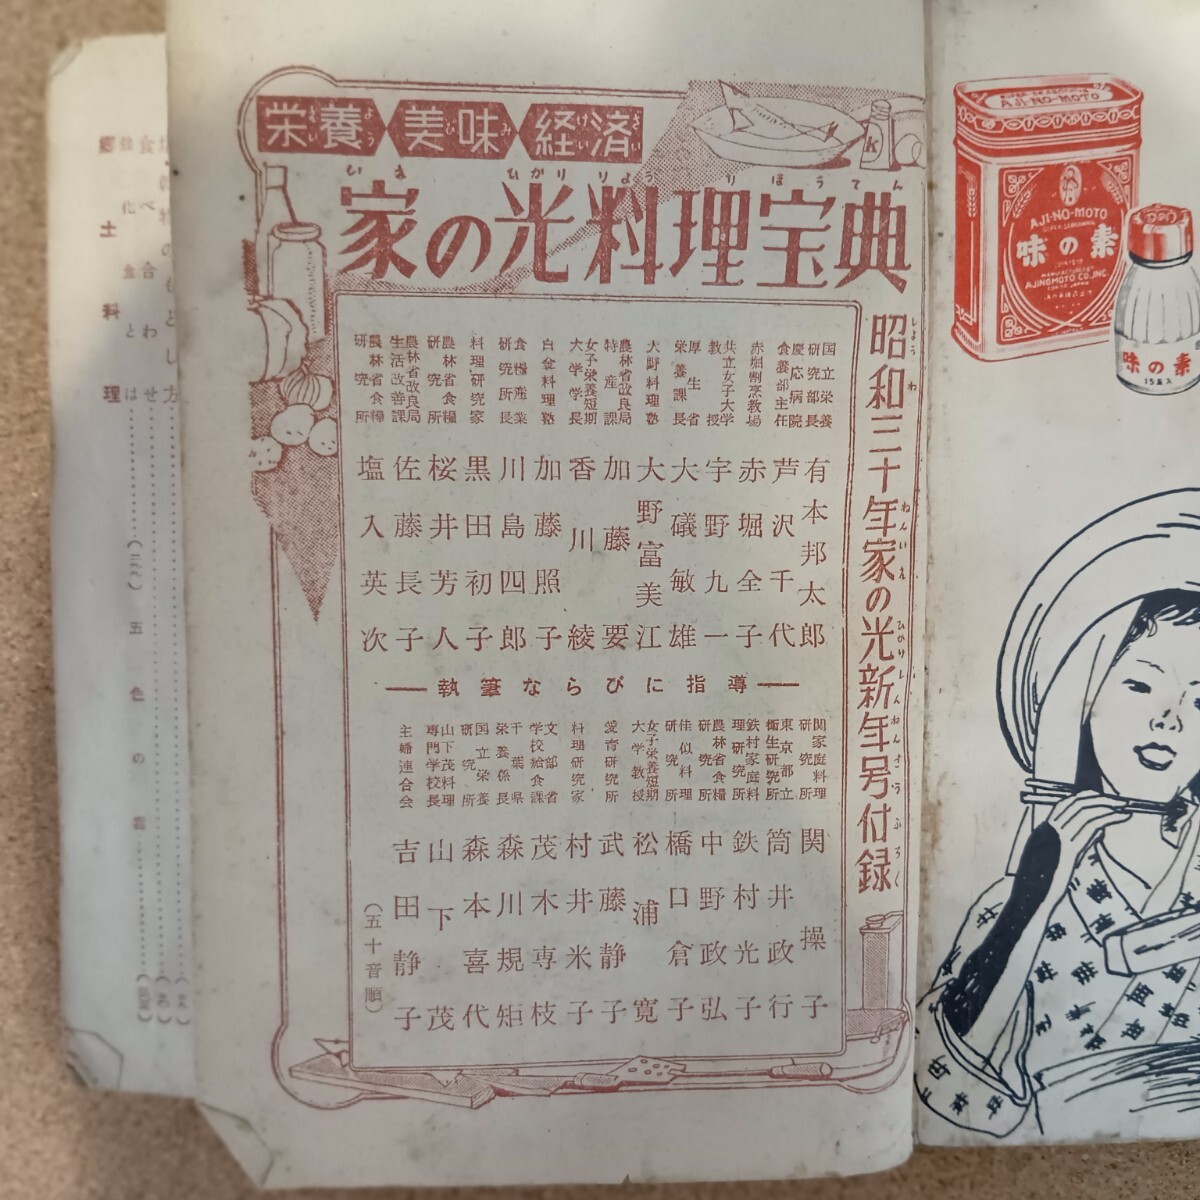 栄養 美味 経済
家の光料理宝典
昭和三十年家の光新年号付録
国立栄養研究部長 有本邦太郎
慶応病院食養部主任 芦沢千代
赤堀割烹教場 赤堀全子
共立女子大学教授 宇野九一
厚生省栄養課長 大磯敏雄
大野料理塾 大野富美江
農林省改良局特産課 加藤要
女子栄養短期大学学長 香川綾
白倉料理塾 加藤照子
食糧産業研究所長 川島四郎
料理研究家 黒田初子
農林省食糧研究所 桜井芳人
農林省改良局生活改善課 佐藤長子
農林省食糧研究所 塩入英次
執筆ならびに指導
関家庭料理研究所 関操子
東京都立衛生研究所 筒井政行
鉄村家庭料理研究所 鉄村光子
農林省食糧研究所 中野政弘
佳似料理研究所 橋口倉子
女子栄養短期大学教授 松浦寛
愛育研究所 武藤静子
料理研究家 村井米子
文部省学校給食課 茂木専枝
千葉県栄養係長 森川規矩
国立栄養研究所 森本喜代
山下茂料理専門学校長 山下茂
主婦連合会 吉田静子
（五十音順）
AJI-NO-MOTO
AJI-NO-MOTO
味の素
AJINOMOTO CO.,INC.
味の素
郷土料理